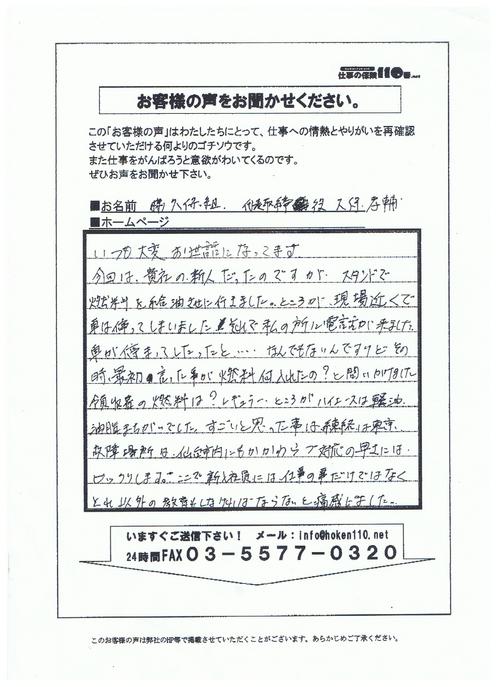 仕事の保険110番.net
お客様の声をお聞かせください。
この「お客様の声」はわたしたちにとって、仕事への情熱とやりがいを再確認
させていただける何よりのゴチソウです。
また仕事をがんばろうと意欲がわいてくるのです。
ぜひお声をお聞かせ下さい。
■お名前 ㈱久保組 代表取締役 久保
■ホームページ
いつも大変お世話になってます
今回は、貴社の新人だったのですが、スタンドで
燃料を給油に行きました。ところが、現場近くで
車は停ってしまいました 私の所に電話が来ました
車が停まってしまったと…… なんでもないんですけど その
時、最初に言った事が燃料何入れたの?と問いかけました
領収書の燃料は?レギュラー、ところがハイエースは軽油、
油脂まちがいでした。すごいと思った事は連絡は東京、
故障場所は仙台市内にもかかわらづ対応の早さには
ビックリします。ここで新入社員には仕事の事だけではなく
それ以外の教育もしなければならないと痛感しました。
いますぐご送信下さい! メール:info@hoken110.net
24時間FAX03-5577-0320
このお客様の声は弊社のHP等で掲載させていただくことがございます。あらかじめご了承ください。